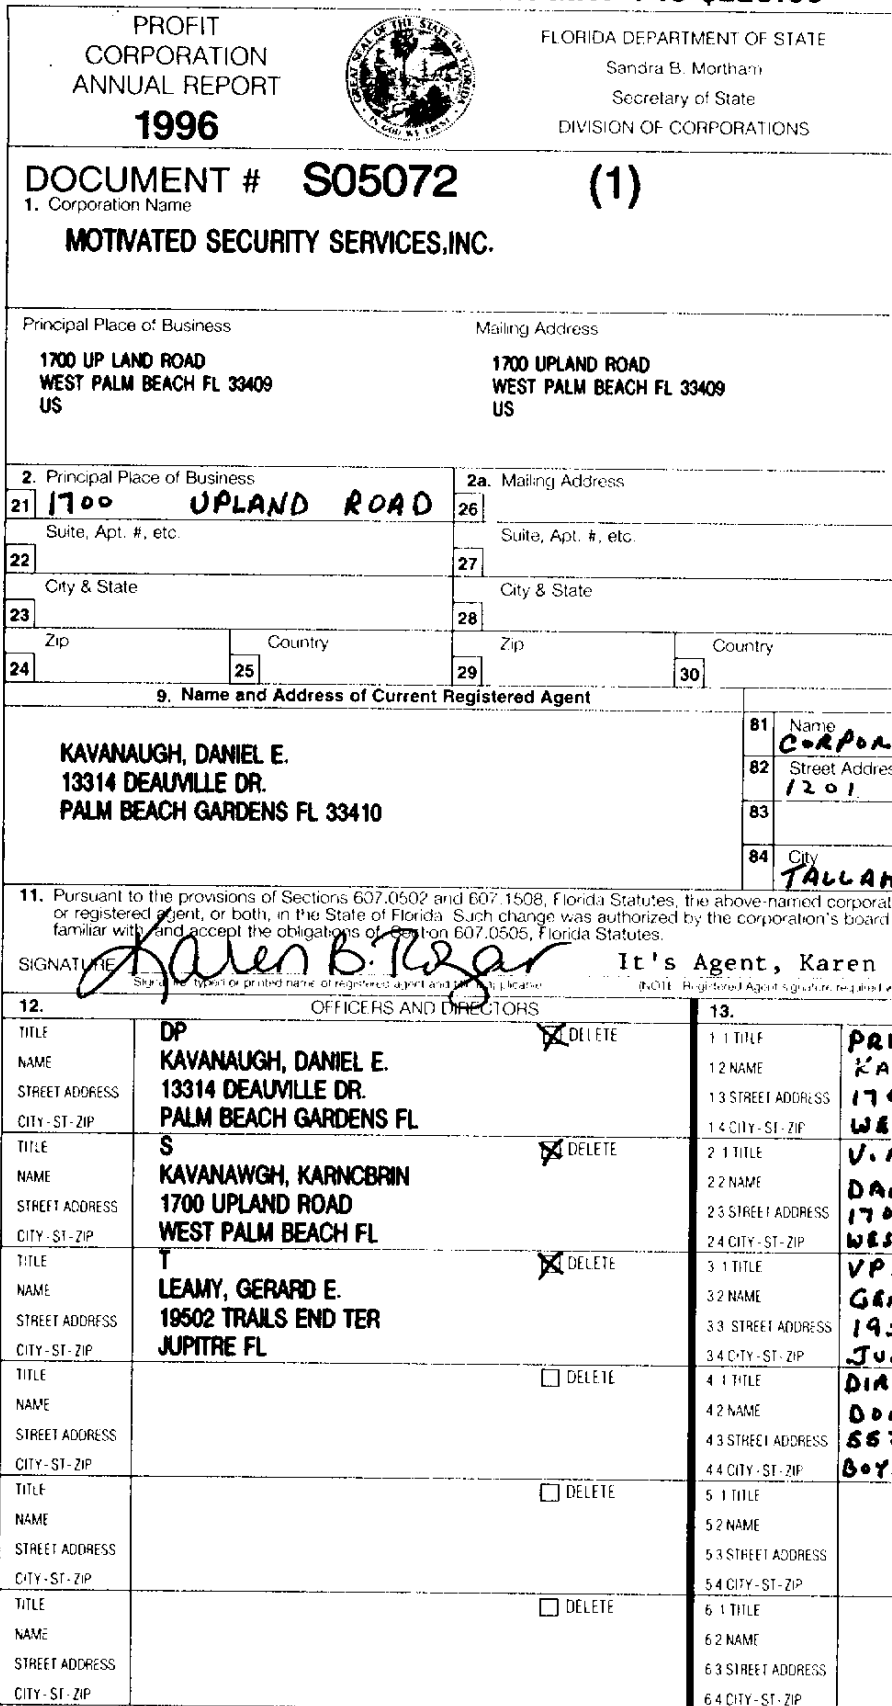 PROFIT
CORPORATION
ANNUAL REPORT
1996
GREAT SEAL OF THE STATE OF FLORIDA
IN GOD WE TRUST
FLORIDA DEPARTMENT OF STATE
Sandra B. Mortham
Secretary of State
DIVISION OF CORPORATIONS
DOCUMENT # S05072 (1)
1. Corporation Name
MOTIVATED SECURITY SERVICES,INC.
Principal Place of Business
1700 UP LAND ROAD
WEST PALM BEACH FL 33409
US
Mailing Address
1700 UPLAND ROAD
WEST PALM BEACH FL 33409
US
2. Principal Place of Business
21 1700 UPLAND ROAD
2a. Mailing Address
26
Suite, Apt. #, etc.
22
Suite, Apt. #, etc.
27
City & State
23
City & State
28
Zip
24
Country
25
Zip
29
Country
30
9. Name and Address of Current Registered Agent
KAVANAUGH, DANIEL E.
13314 DEAUVILLE DR.
PALM BEACH GARDENS FL 33410
81 Name
CORPOR
82 Street Addres
1201
83
84 City
TALLAH
11. Pursuant to the provisions of Sections 607.0502 and 607.1508, Florida Statutes, the above-named corporat
or registered agent, or both, in the State of Florida. Such change was authorized by the corporation's board
familiar with, and accept the obligations of, Section 607.0505, Florida Statutes.
SIGNATURE Karen B. Rozar It's Agent, Karen
Signature, typed or printed name of registered agent and title if applicable (NOTE: Registered Agent signature required
12. OFFICERS AND DIRECTORS
TITLE DP DELETE
NAME KAVANAUGH, DANIEL E.
STREET ADDRESS 13314 DEAUVILLE DR.
CITY-ST-ZIP PALM BEACH GARDENS FL
TITLE S DELETE
NAME KAVANAWGH, KARNCBRIN
STREET ADDRESS 1700 UPLAND ROAD
CITY-ST-ZIP WEST PALM BEACH FL
TITLE T DELETE
NAME LEAMY, GERARD E.
STREET ADDRESS 19502 TRAILS END TER
CITY-ST-ZIP JUPITRE FL
TITLE DELETE
NAME
STREET ADDRESS
CITY-ST-ZIP
TITLE DELETE
NAME
STREET ADDRESS
CITY-ST-ZIP
TITLE DELETE
NAME
STREET ADDRESS
CITY-ST-ZIP
13.
1 1 TITLE PRE
1 2 NAME KA
1 3 STREET ADDRESS 170
1 4 CITY-ST-ZIP WE
2 1 TITLE V.
2 2 NAME DA
2 3 STREET ADDRESS 170
2 4 CITY-ST-ZIP WES
3 1 TITLE VP
3 2 NAME GER
3 3 STREET ADDRESS 195
3 4 CITY-ST-ZIP JU
4 1 TITLE DIR
4 2 NAME DO
4 3 STREET ADDRESS 55
4 4 CITY-ST-ZIP BOY
5 1 TITLE
5 2 NAME
5 3 STREET ADDRESS
5 4 CITY-ST-ZIP
6 1 TITLE
6 2 NAME
6 3 STREET ADDRESS
6 4 CITY-ST-ZIP